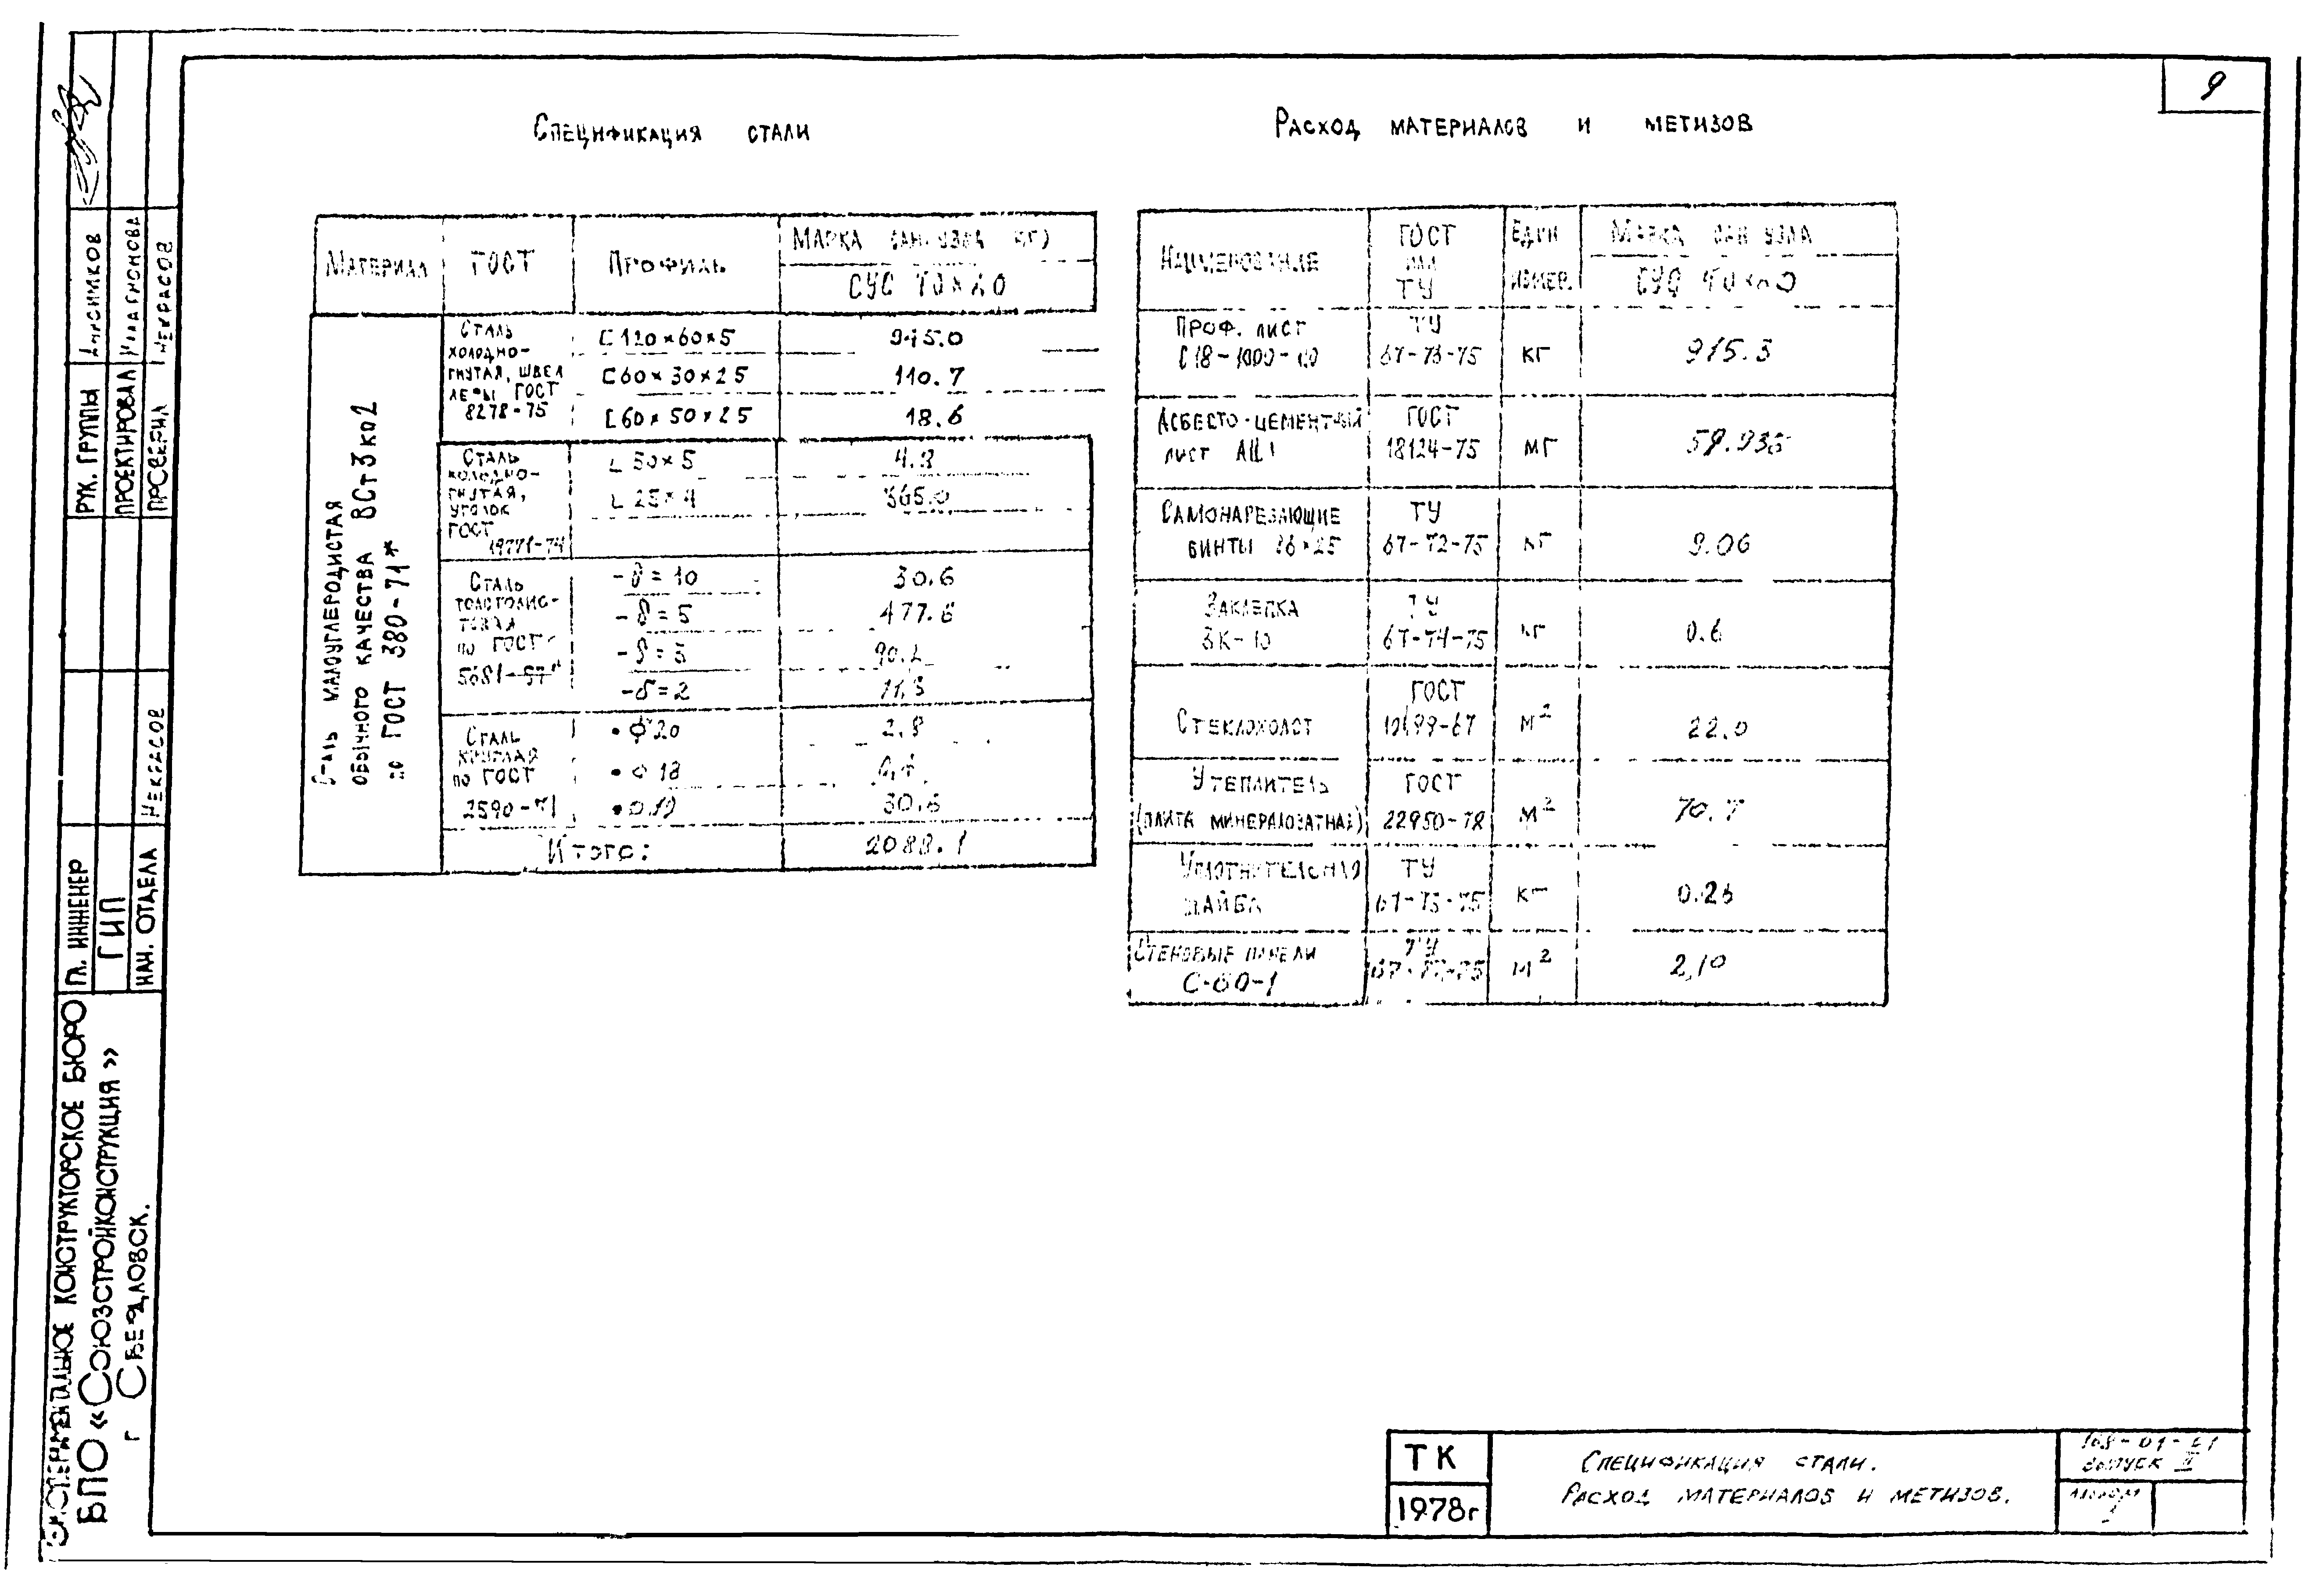 9
Спецификация стали
Материал
ГОСТ
Профиль
Марка сан. узла кг)
СУС
Сталь малоуглеродистая
обычного качества ВСт3кп2
по ГОСТ 380-71*
Сталь
холодно-
гнутая, швел
леры ГОСТ
8278-75
[ 120×60×5
945.0
[ 60×30×25
110.7
[ 60×50×25
18.6
Сталь
холодно-
гнутая,
уголок
ГОСТ
19771-74
∟ 50×5
∟ 25×4
365.0
Сталь
толстолис-
товая
по ГОСТ
5681-57*
-δ=10
30.6
-δ=5
477.6
-δ=3
90.2
-δ=2
11.3
Сталь
круглая
по ГОСТ
2590-71
• ф 20
2.8
• ф 18
30.6
Итого:
2088.1
Расход материалов и метизов
Наименование
ГОСТ
или
ТУ
Един
измер.
Марка сан узла
СУС
Проф. лист
С18-1000-
ТУ
67-73-75
кг
915.3
Асбесто-цементный
лист
ГОСТ
18124-75
Самонарезающие
винты
ТУ
67-72-75
кг
9.06
Заклепка
ЗК-10
ТУ
67-74-75
кг
0.6
Стеклохолст
ГОСТ
10499-67
м2
22.0
Утеплитель
(плита минераловатная)
ГОСТ
22950-78
м2
70.7
Уплотнительная
шайба
ТУ
67-73-75
кг
Стеновые панели
С-60-1
ТУ
м2
2,10
ТК
1978г
Спецификация стали.
Расход материалов и метизов.
выпуск II
Рук. группы
Проектировал
Проверил
Некрасов
Гл. инженер
ГИП
Нач. отдела
Некрасов
Экспериментальное конструкторское бюро
БПО «Союзстройконструкция»
г Свердловск.